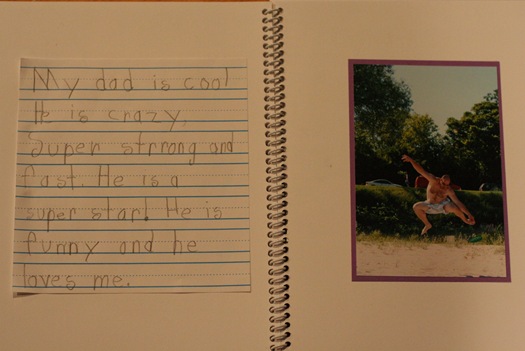 My dad is cool
He is crazy,
Super strrong and
fast. He is a
super star! He is
funny and he
loves me.